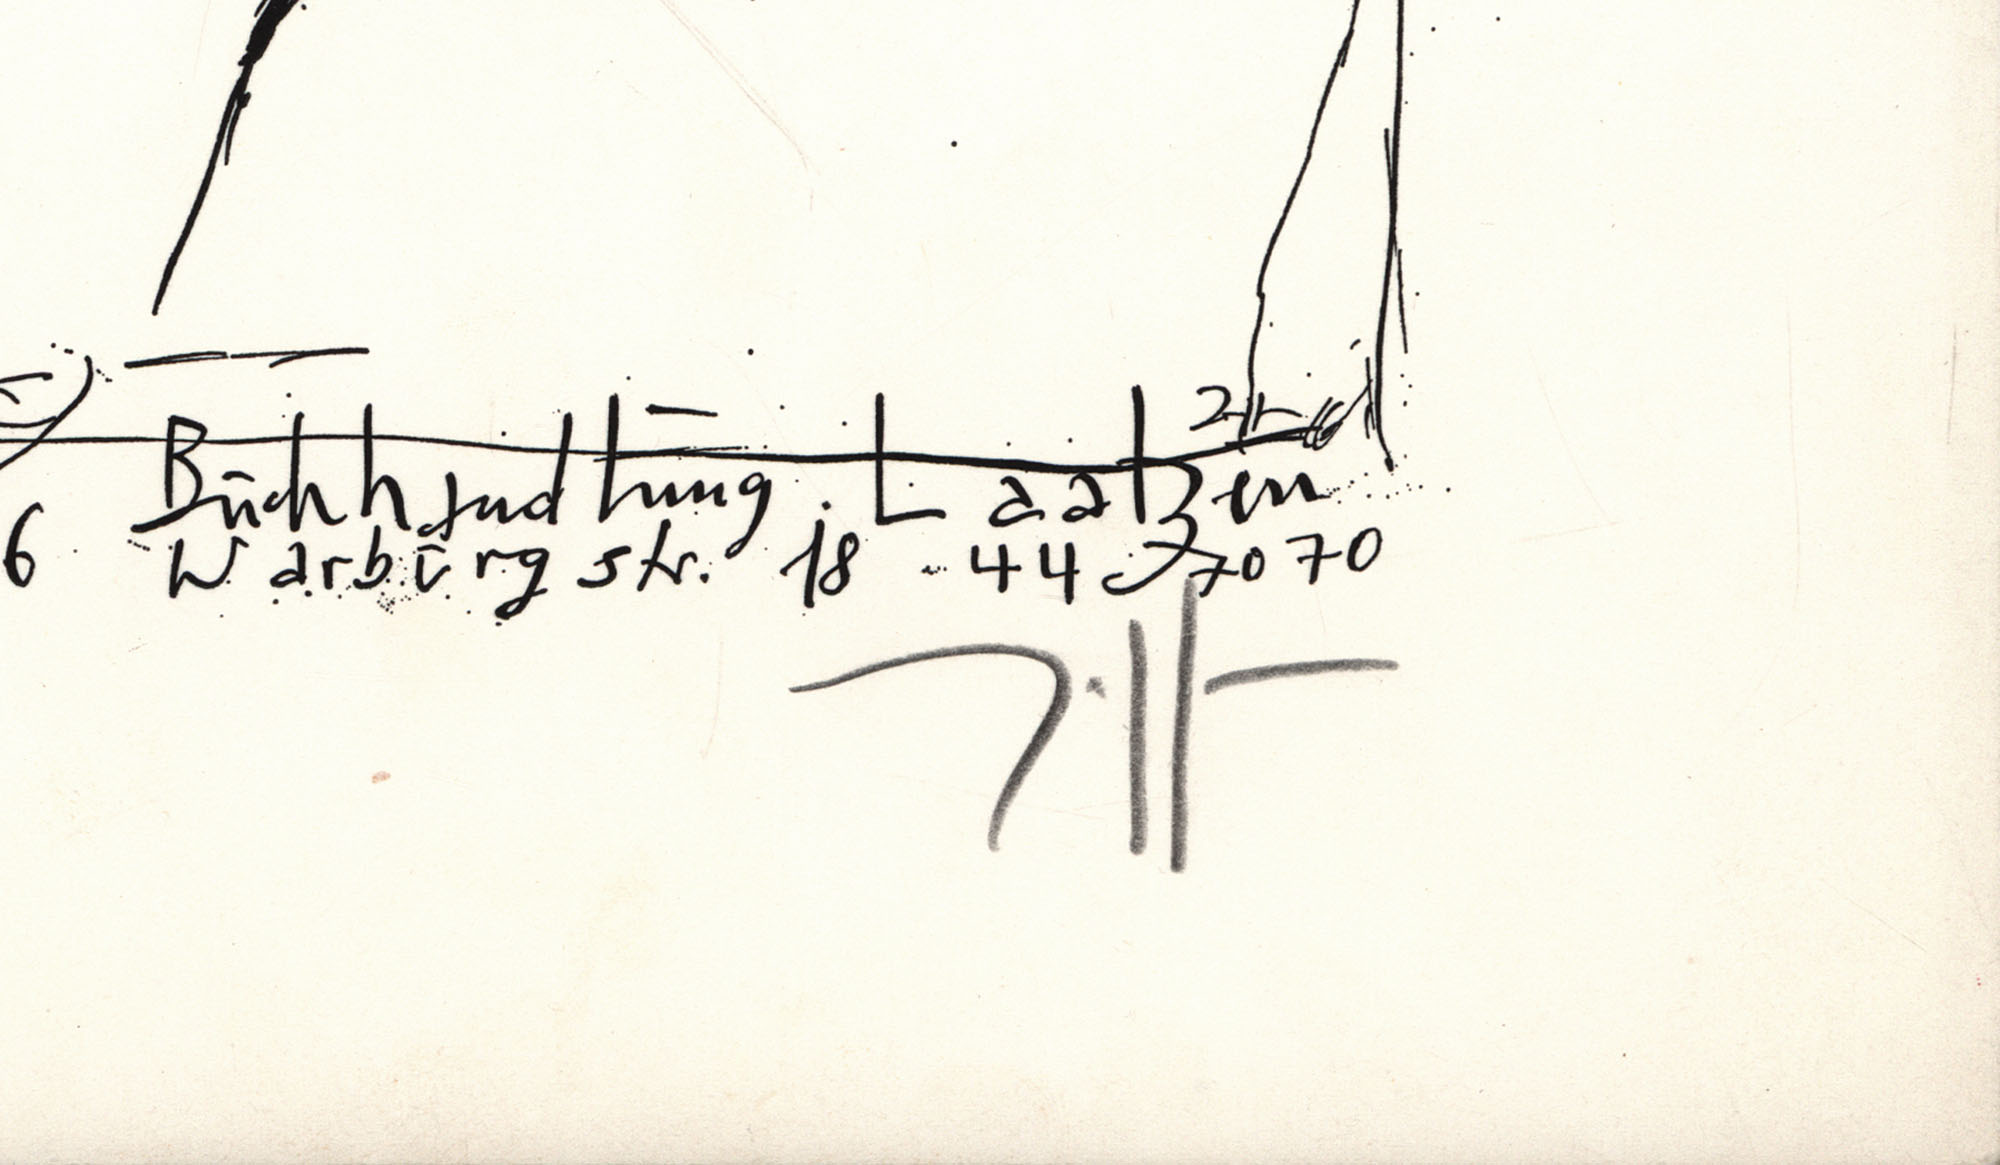 6 Buchhandlung. Laatzen
Warburgstr. 18 - 44 70 70